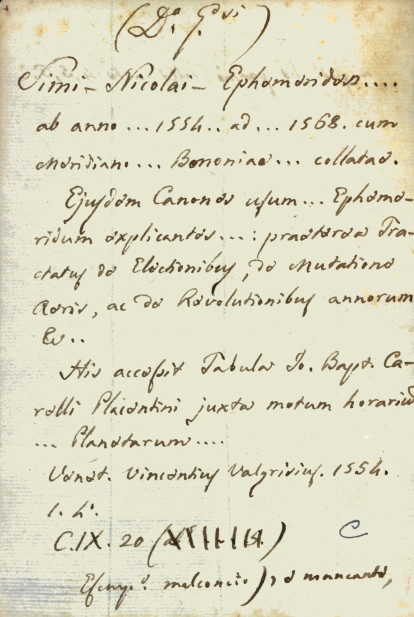 (Da. G.vi)
Simi - Nicolai - Ephemerides....
ab anno ... 1554.. ad ... 1568. cum
Meridiano ... Bononiae ... collatae.
Ejusdem Canones usum ... Epheme-
ridum explicantes ... : praeterea Tra-
ctatus de Electionibus, de Mutatione
Aeris, ac de Revolutionibus annorum
His accessit Tabula Jo. Bapt. Ca-
relli Placentini juxta motum horariū
... Planetarum ....
Venet. Vincentius Valgrisius. 1554.
1. 4°.
C. IX. 20 ( ) C
Esemp.o malconcio, e mancante,